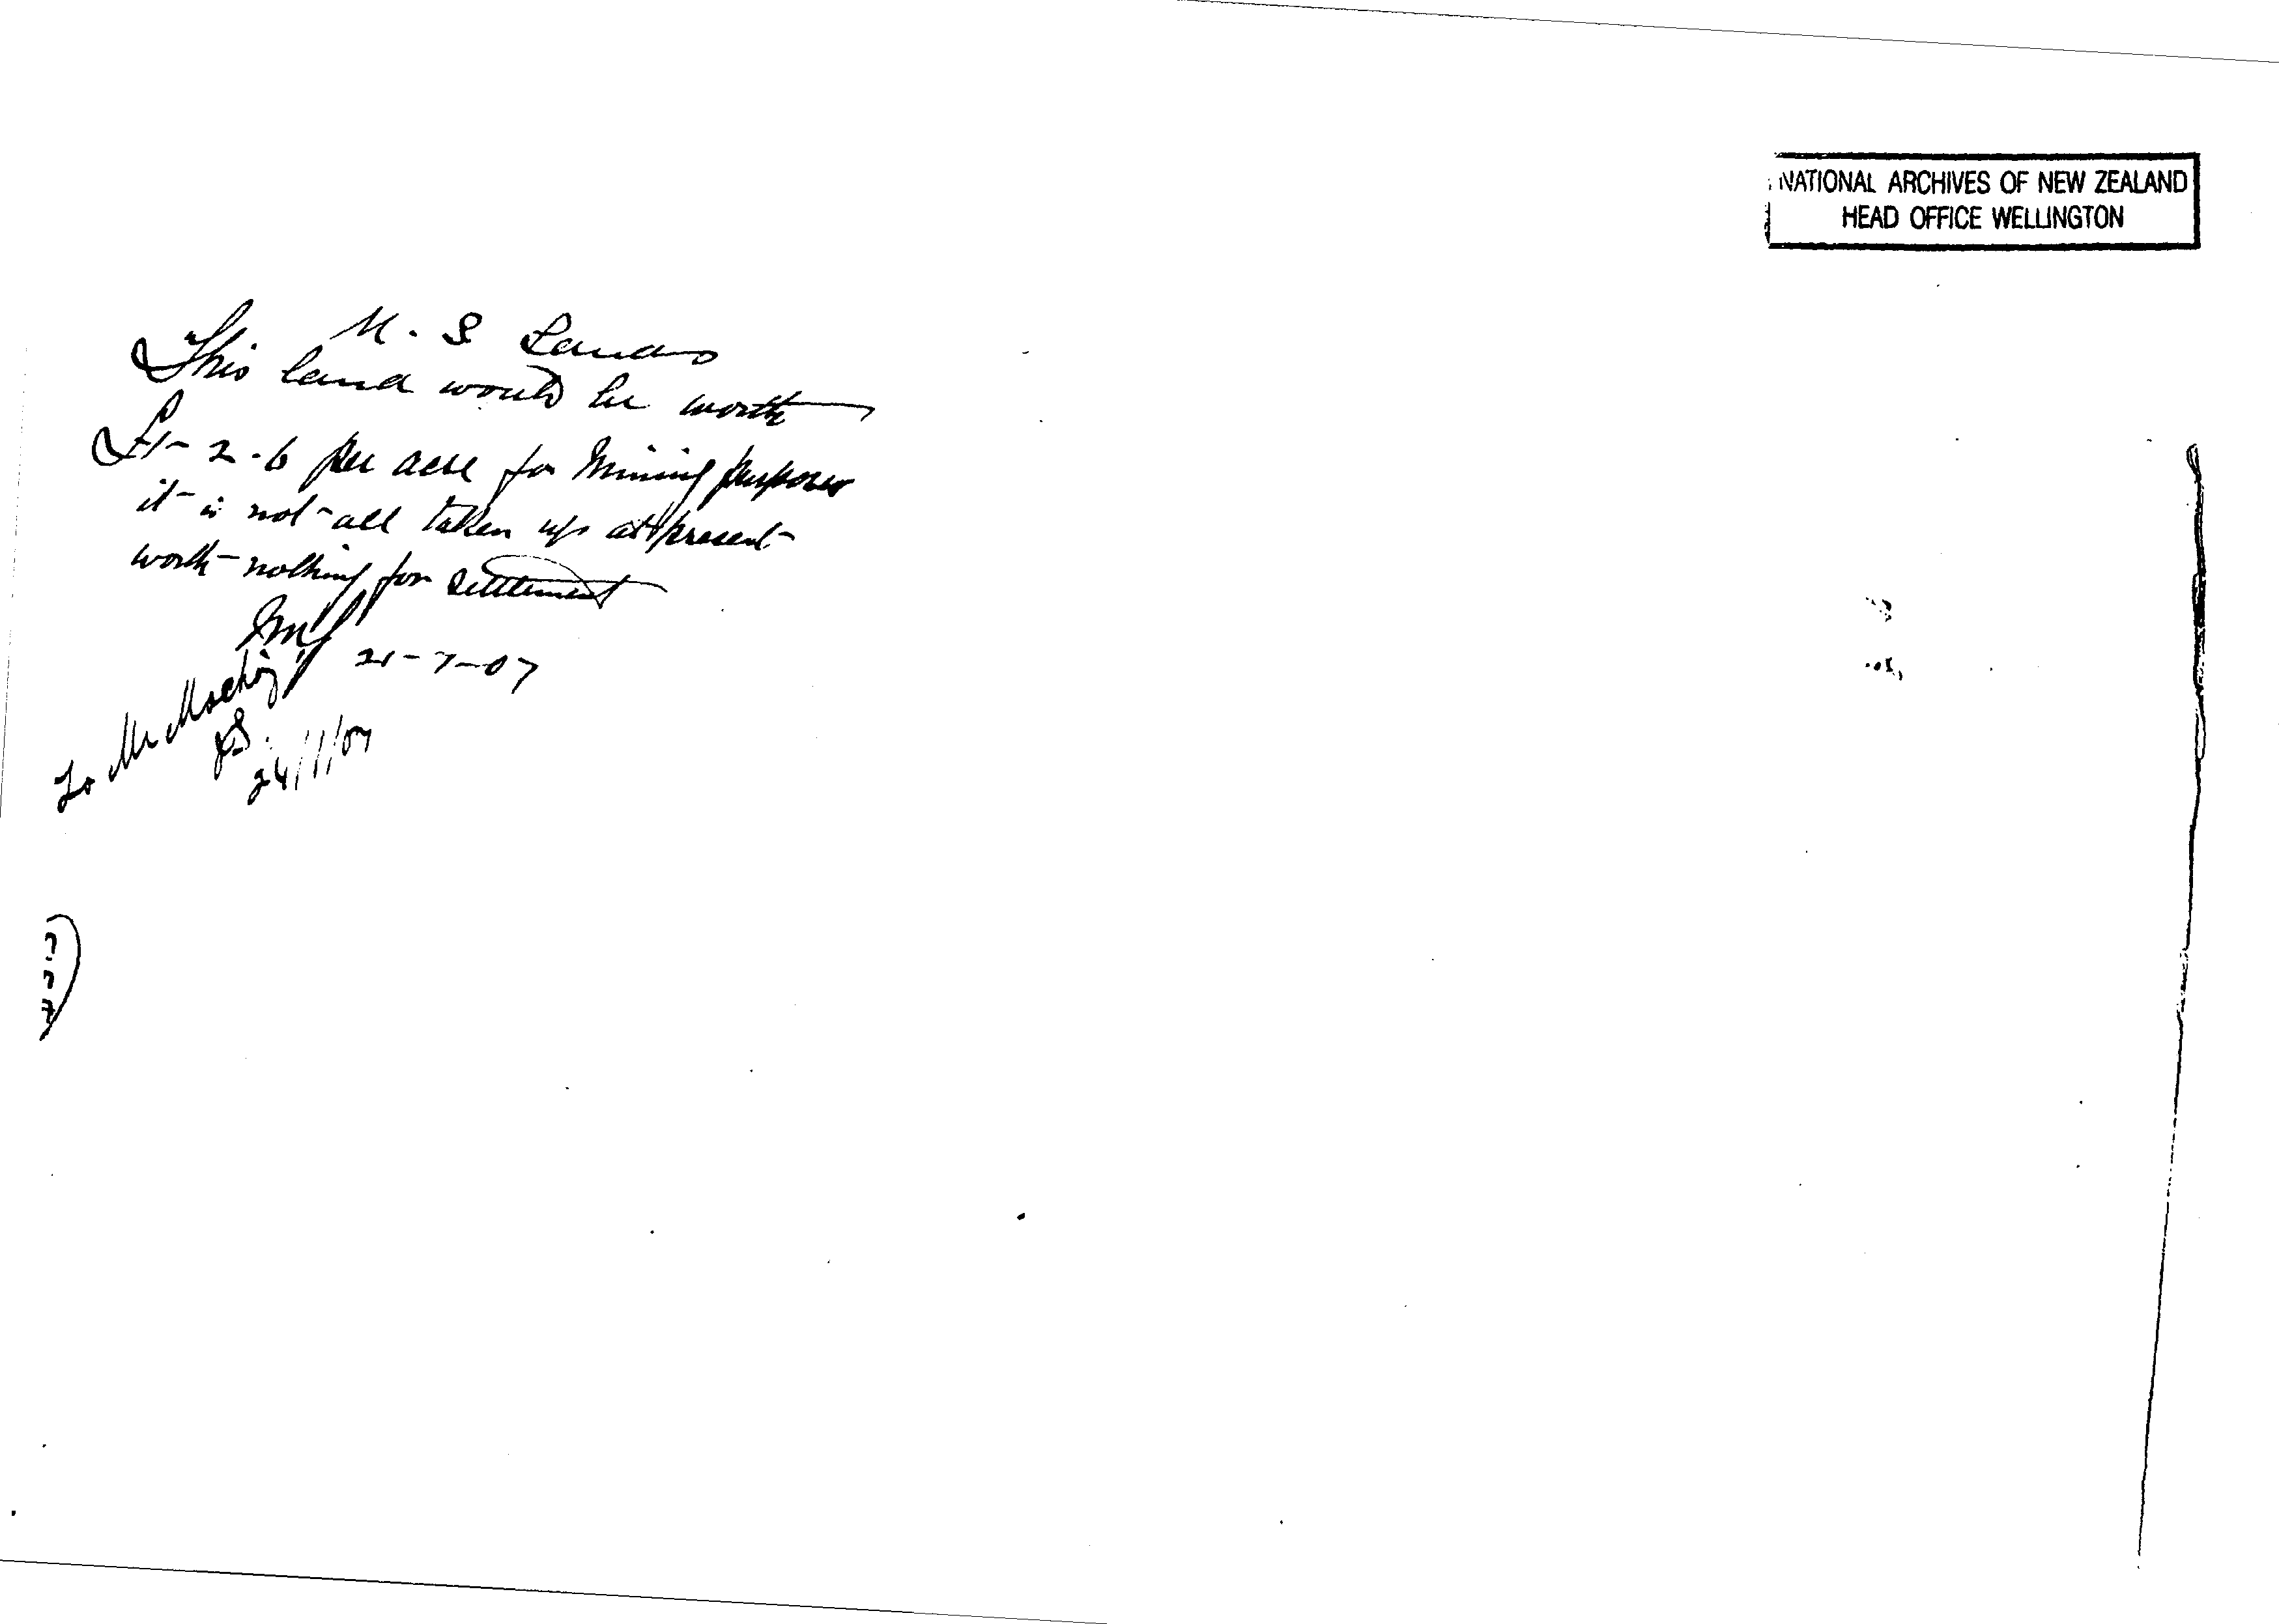 NATIONAL ARCHIVES OF NEW ZEALAND
HEAD OFFICE WELLINGTON
U. S Lands
This land would be worth
£1-2-6 per acre for Mining purposes
it is not all taken up at present
worth nothing for settlement
21-7-07
To Mr